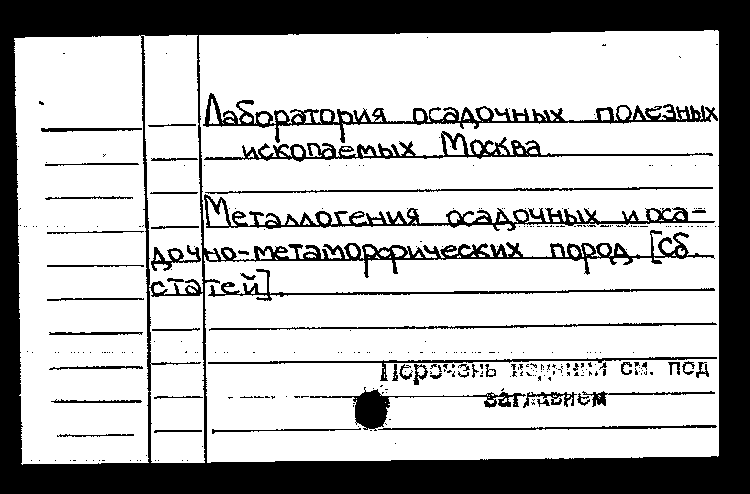 Лаборатория осадочных полезных
ископаемых. Москва
Металлогения осадочных и оса-
дочно-метаморфических пород. [Сб.
статей].
Перечень изданий см. под
заглавием